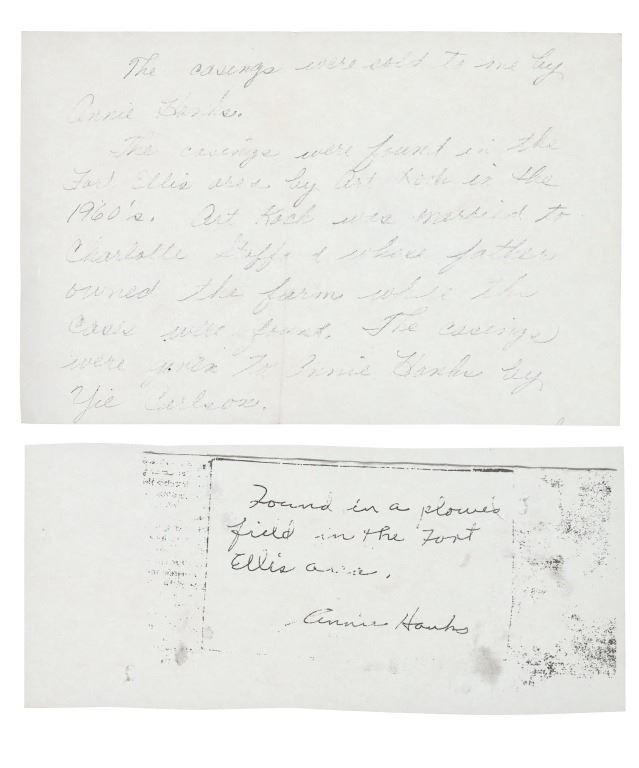 The casings were sold to me by
Annie Hanks.
The casings were found in the
Fort Ellis area by Art Koch in the
1960's. Art Koch was married to
Charlotte whose father
owned the farm the
cases were found. The casings
were given to Annie Hanks by
Carlson.
Found in a plowed
field in the Fort
Ellis area.
Annie Hanks